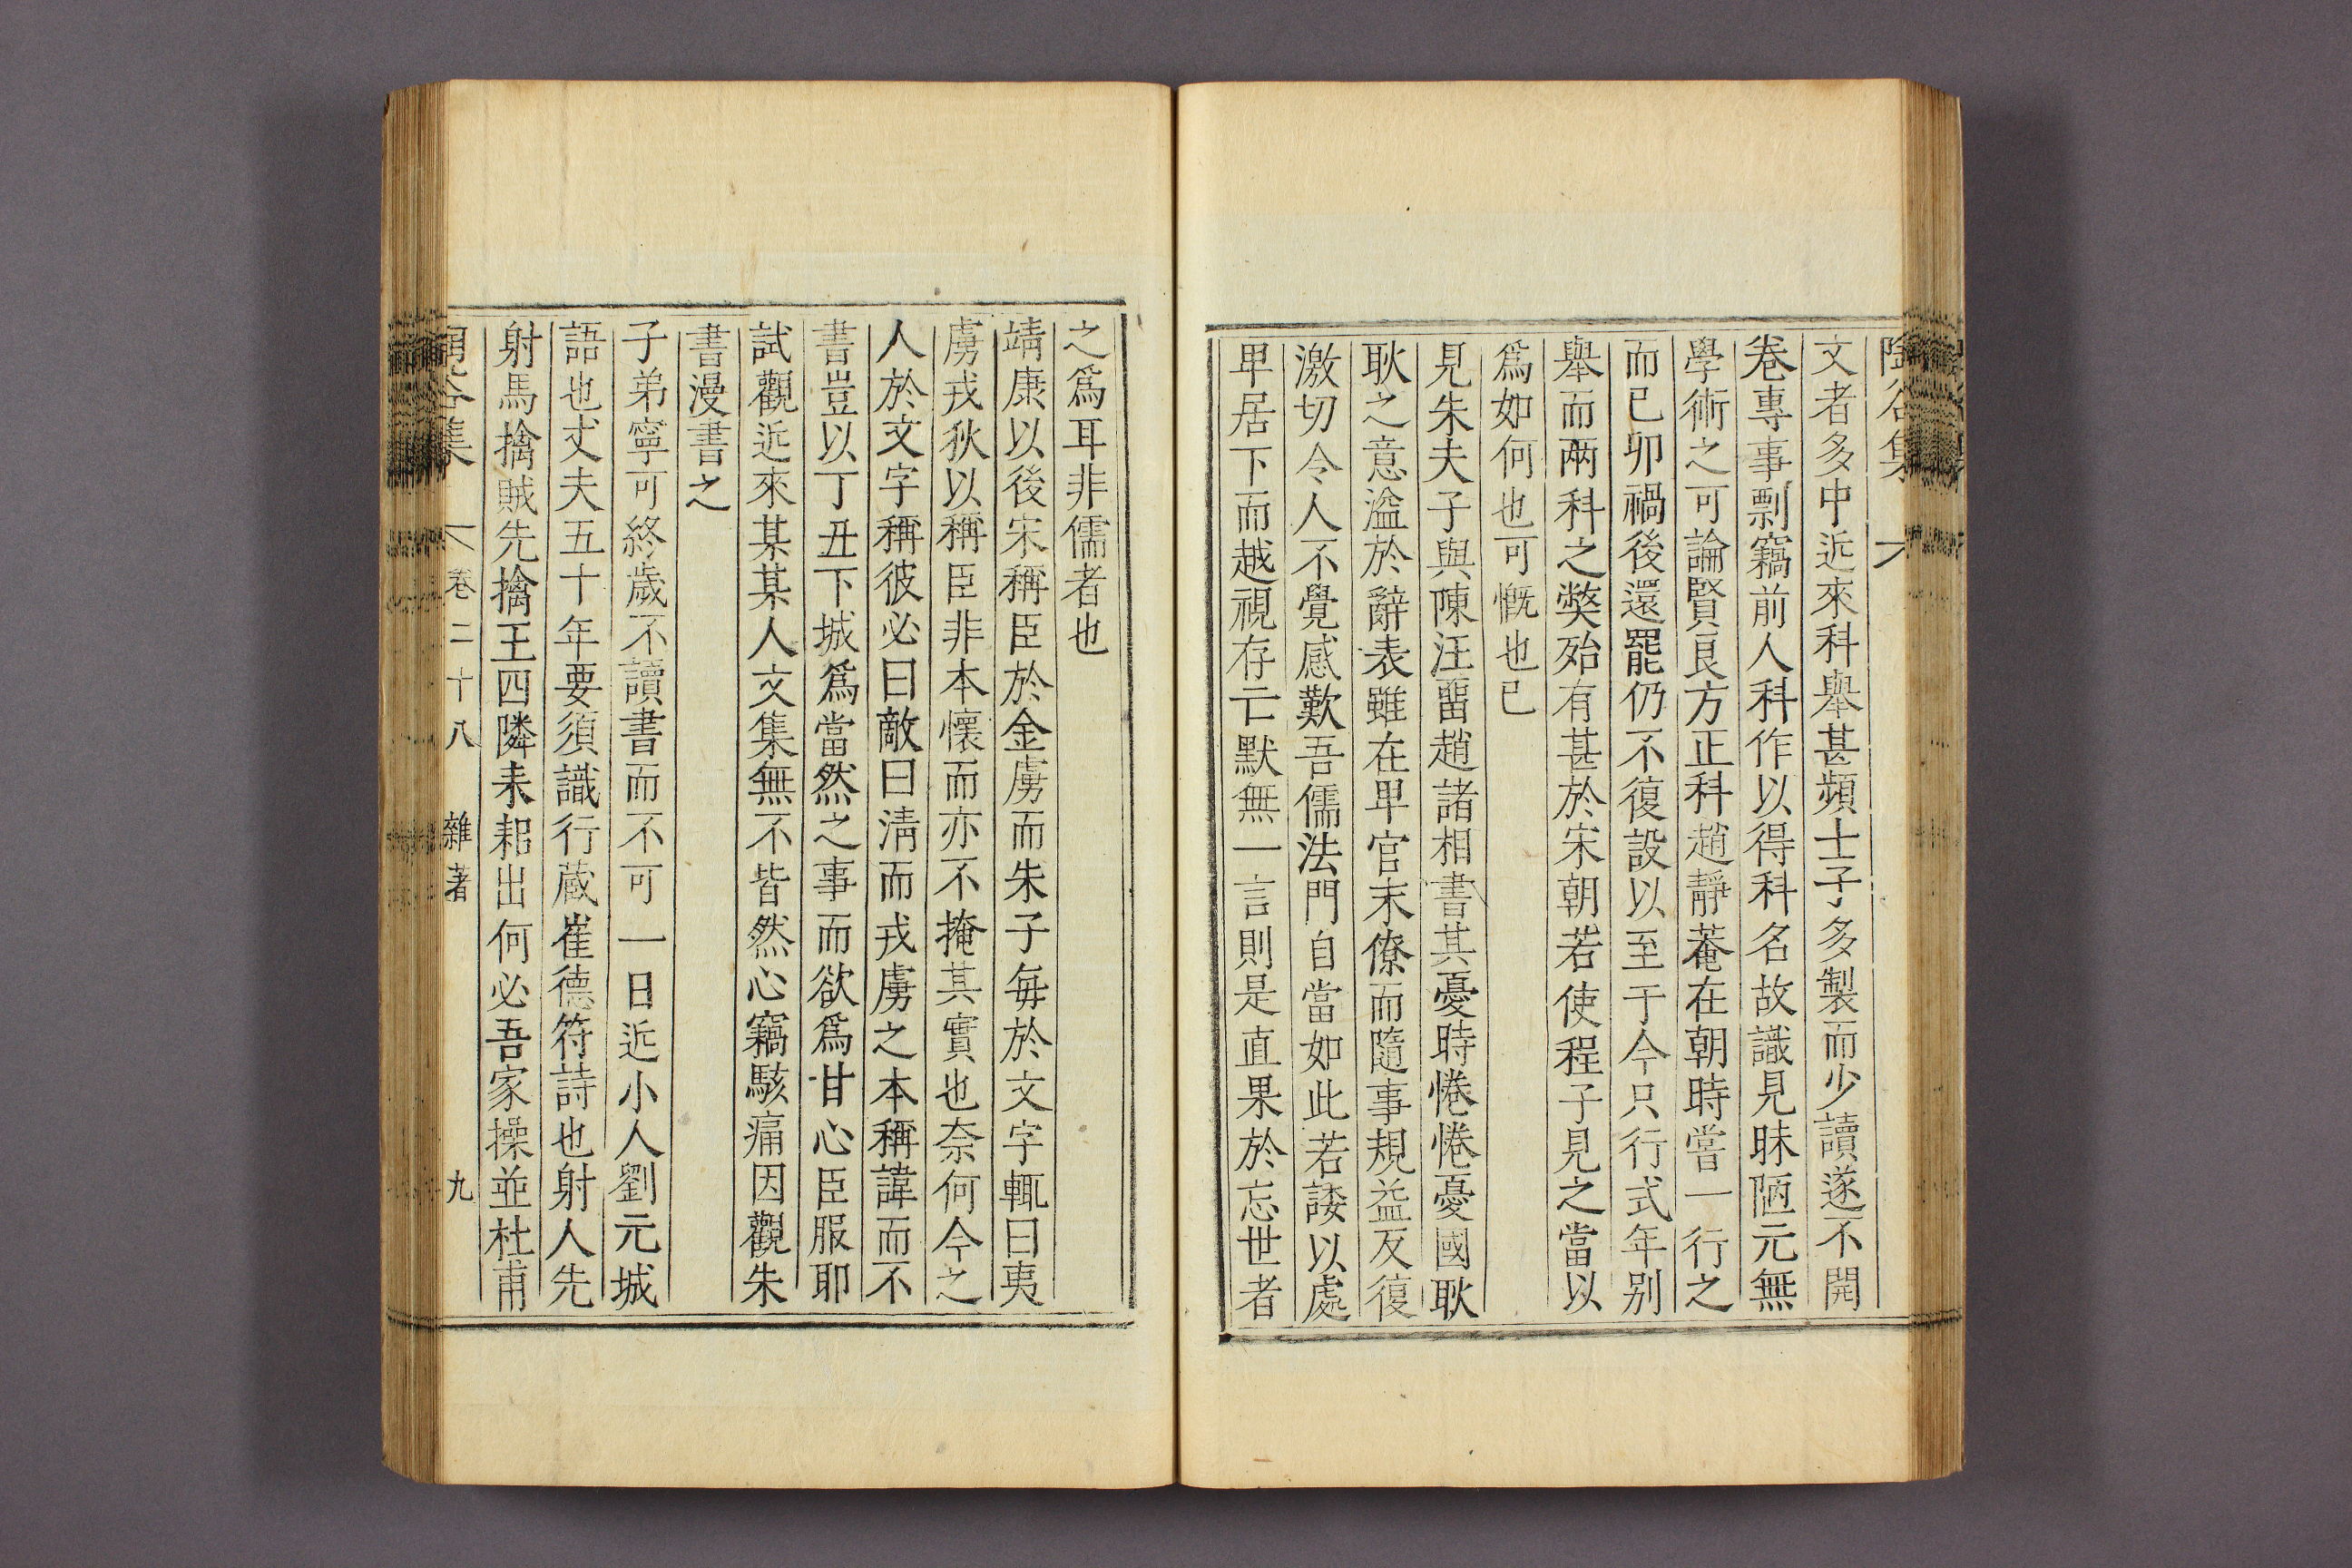 陶谷集
文者多中近來科舉甚頻士子多製而少讀遂不開
卷專事剽竊前人科作以得科名故識見昧陋元無
學術之可論賢良方正科趙靜菴在朝時嘗一行之
而已卯禍後還罷仍不復設以至于今只行式年別
舉而兩科之獘殆有甚於宋朝若使程子見之當以
爲如何也可慨也已
見朱夫子與陳汪留趙諸相書其憂時惓惓憂國耿
耿之意溢於辭表雖在卑官末僚而隨事規益反復
激切令人不覺感歎吾儒法門自當如此若諉以處
卑居下而越視存亡默無一言則是直果於忘世者
之爲耳非儒者也
靖康以後宋稱臣於金虜而朱子每於文字輒曰夷
虜戎狄以稱臣非本懷而亦不掩其實也奈何今之
人於文字稱彼必曰敵曰淸而戎虜之本稱諱而不
書豈以丁丑下城爲當然之事而欲爲甘心臣服耶
試觀近來某某人文集無不皆然心竊駭痛因觀朱
書漫書之
子弟寧可終歲不讀書而不可一日近小人劉元城
語也丈夫五十年要須識行蔵崔德符詩也射人先
射馬擒賊先擒王四隣耒耜出何必吾家操並杜甫
陶谷集 卷二十八 雜著 九